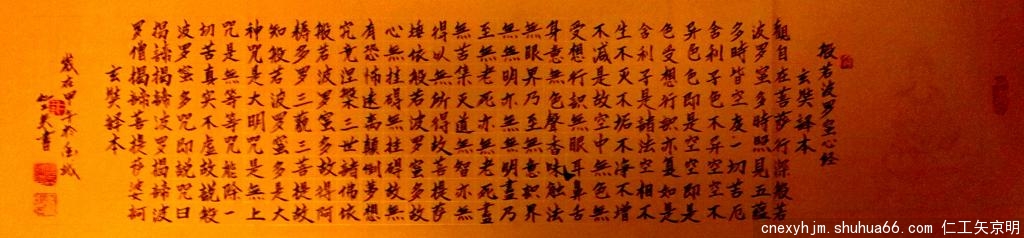 般若波罗蜜心经
玄奘譯本
觀自在菩薩行深般若
波罗蜜多時照見五蘊
多時皆空度一切苦厄
舍利子色不异空空不
異色色即是空空即是
色受想行識亦復如是
舍利子是諸法空相不
生不灭不垢不净不增
不减是故空中無色無
受想行識無眼耳鼻舌
身意無色聲香味觸法
無眼界乃至無意識界
無無明亦無無明盡乃
至無老死亦無老死盡
無苦集灭道無智亦無
得以無所得故菩提萨
埵依般若波罗蜜多故
心無挂碍無挂碍故無
有恐怖遠离顛倒夢想
究竟涅槃三世諸佛依
般若波罗蜜多故得阿
耨多罗三藐三菩提故
知般若波罗蜜多是大
神咒是大明咒是無上
咒是無等等咒能除一
切苦真实不虚故説般
波罗蜜多咒即説咒曰
揭諦揭諦波罗揭諦波
罗僧揭諦菩提萨婆訶
玄奘譯本
岁在甲午
書
cnexyhjm.shuhua66.com 仁工矢京明